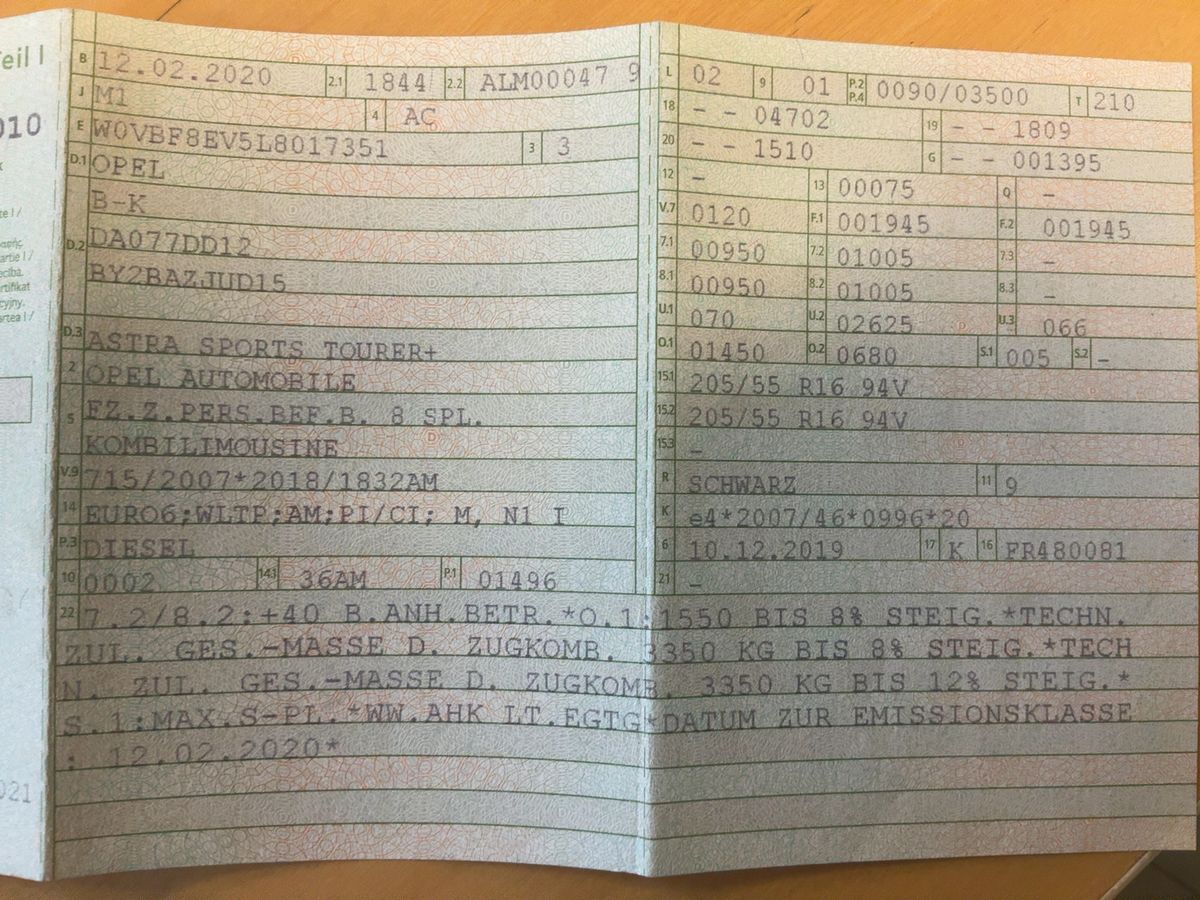 Teil I
010
021
B 12.02.2020 2.1 1844 2.2 ALM00047 9
J M1 4 AC
E W0VBF8EV5L8017351 3 3
D.1 OPEL
B-K
D.2 DA077DD12
BY2BAZJUD15
D.3 ASTRA SPORTS TOURER+
2 OPEL AUTOMOBILE
5 FZ.Z.PERS.BEF.B. 8 SPL.
KOMBILIMOUSINE
V.9 715/2007*2018/1832AM
14 EURO6;WLTP;AM;PI/CI; M, N1 I
P.3 DIESEL
10 0002 14.1 36AM P.1 01496
L 02 9 01 P.2 P.4 0090/03500 T 210
18 - - 04702 19 - - 1809
20 - - 1510 G - - 001395
12 - 13 00075 Q -
V.7 0120 F.1 001945 F.2 001945
7.1 00950 7.2 01005 7.3 -
8.1 00950 8.2 01005 8.3 -
U.1 070 U.2 02625 U.3 066
O.1 01450 O.2 0680 S.1 005 S.2 -
15.1 205/55 R16 94V
15.2 205/55 R16 94V
15.3 -
R SCHWARZ 11 9
K e4*2007/46*0996*20
6 10.12.2019 17 K 16 FR480081
21 -
22 7.2/8.2:+40 B.ANH.BETR.*O.1:1550 BIS 8% STEIG.*TECHN.
ZUL. GES.-MASSE D. ZUGKOMB. 3350 KG BIS 8% STEIG.*TECH
N. ZUL. GES.-MASSE D. ZUGKOMB. 3350 KG BIS 12% STEIG.*
S.1:MAX.S-PL.*WW.AHK LT.EGTG*DATUM ZUR EMISSIONSKLASSE
: 12.02.2020*